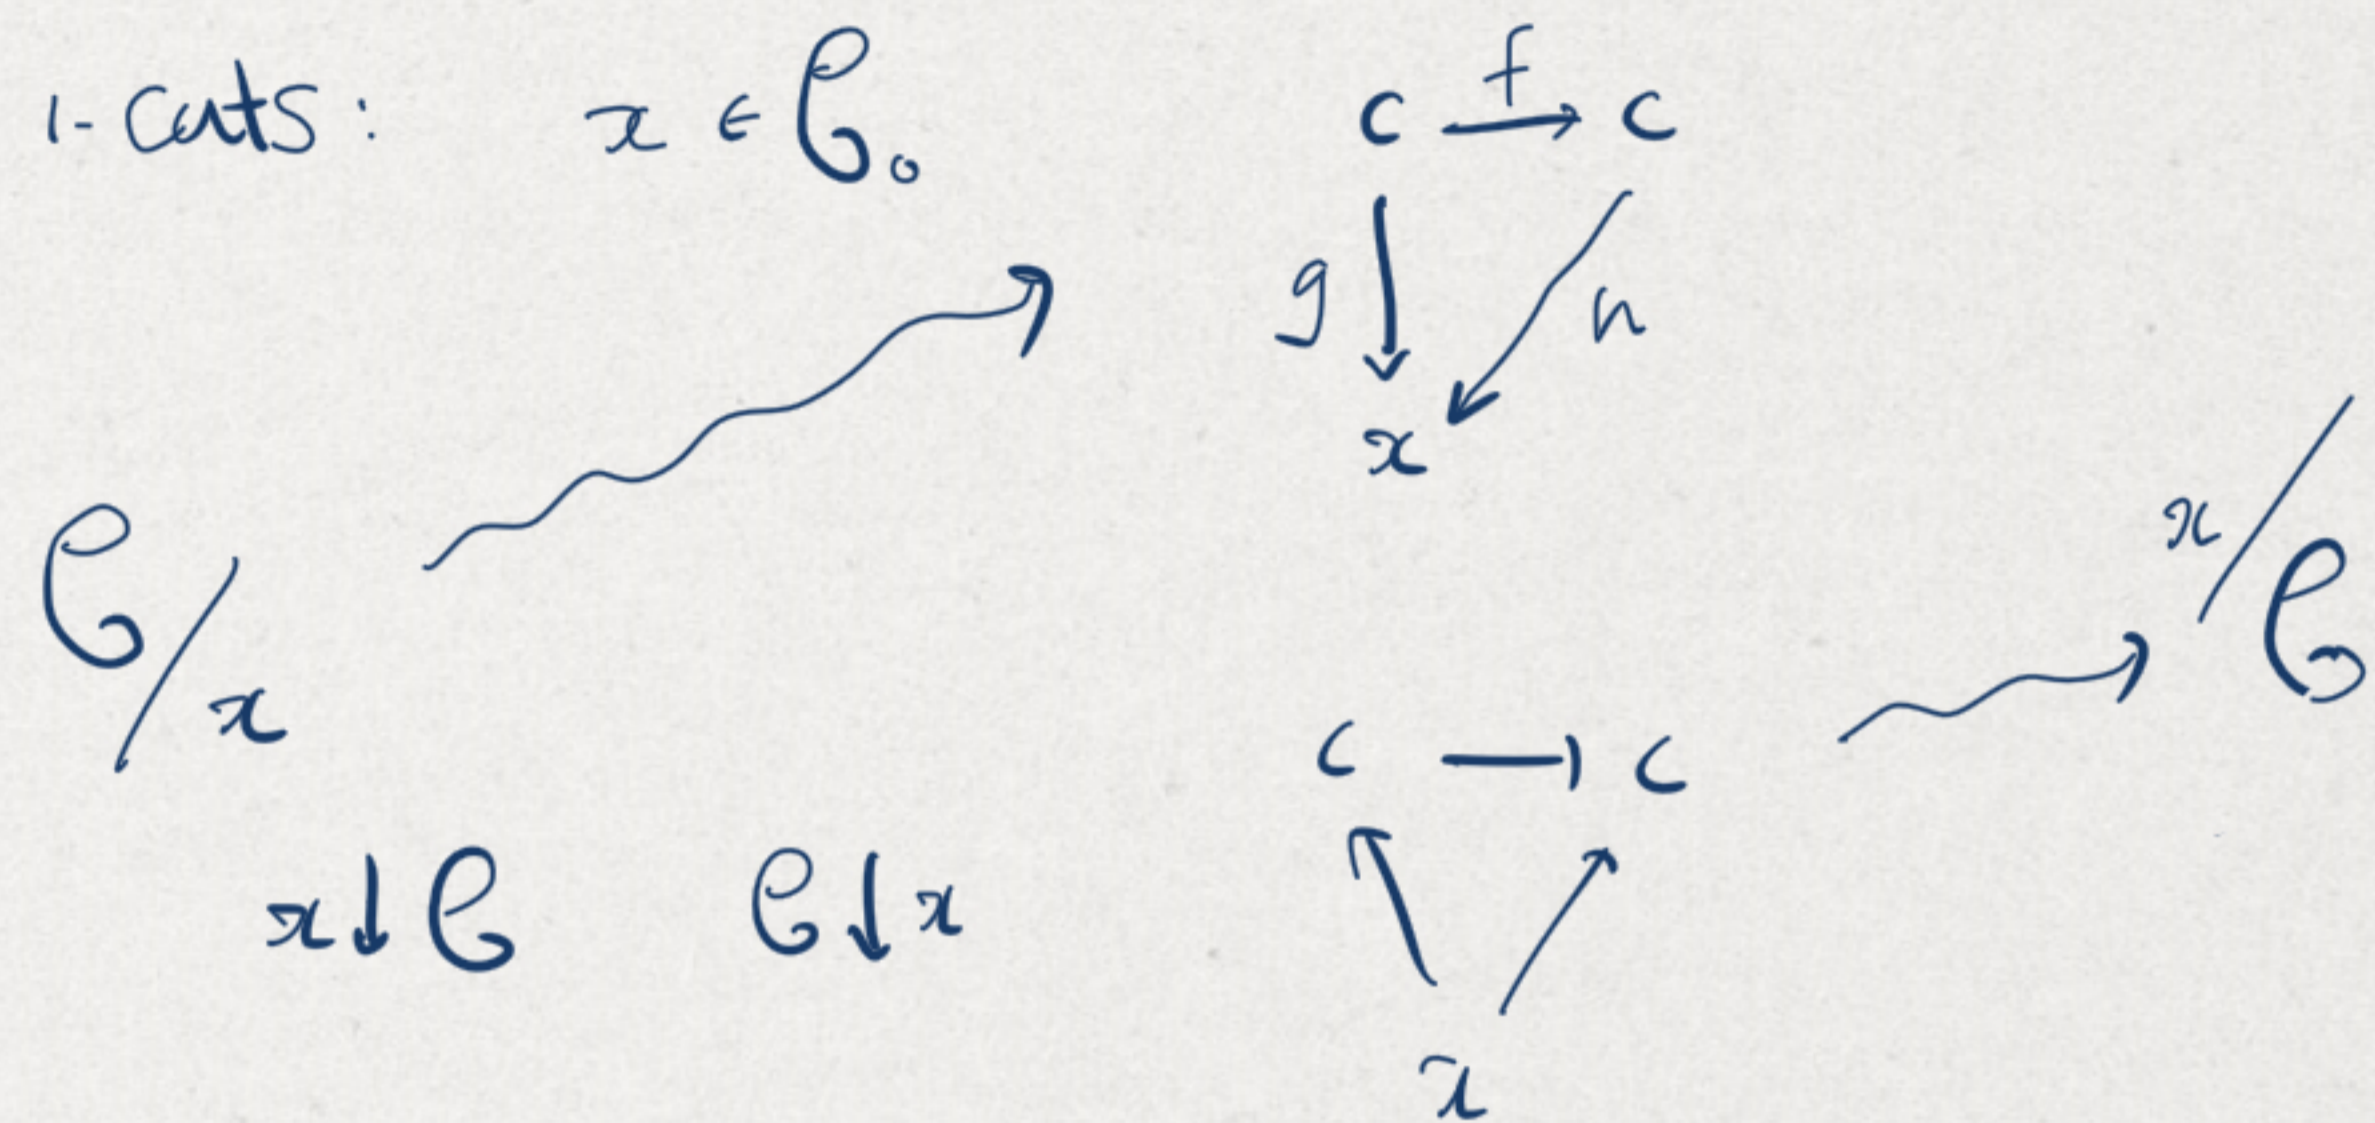 1-cats: x ∈ 𝒞₀
c →f c
g h
x
𝒞/x
x/𝒞
c → c
x↓𝒞 𝒞↓x
x